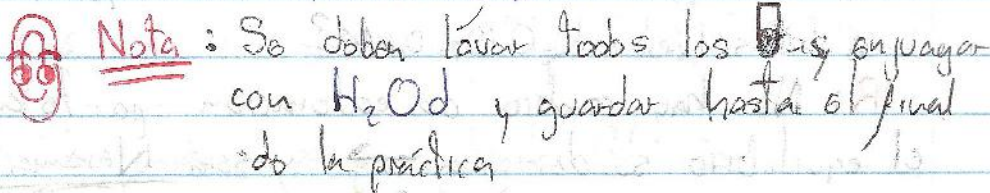 Nota : Se deben lavar todos los s, enjuagar
con H₂Od y guardar hasta el final
de la práctica